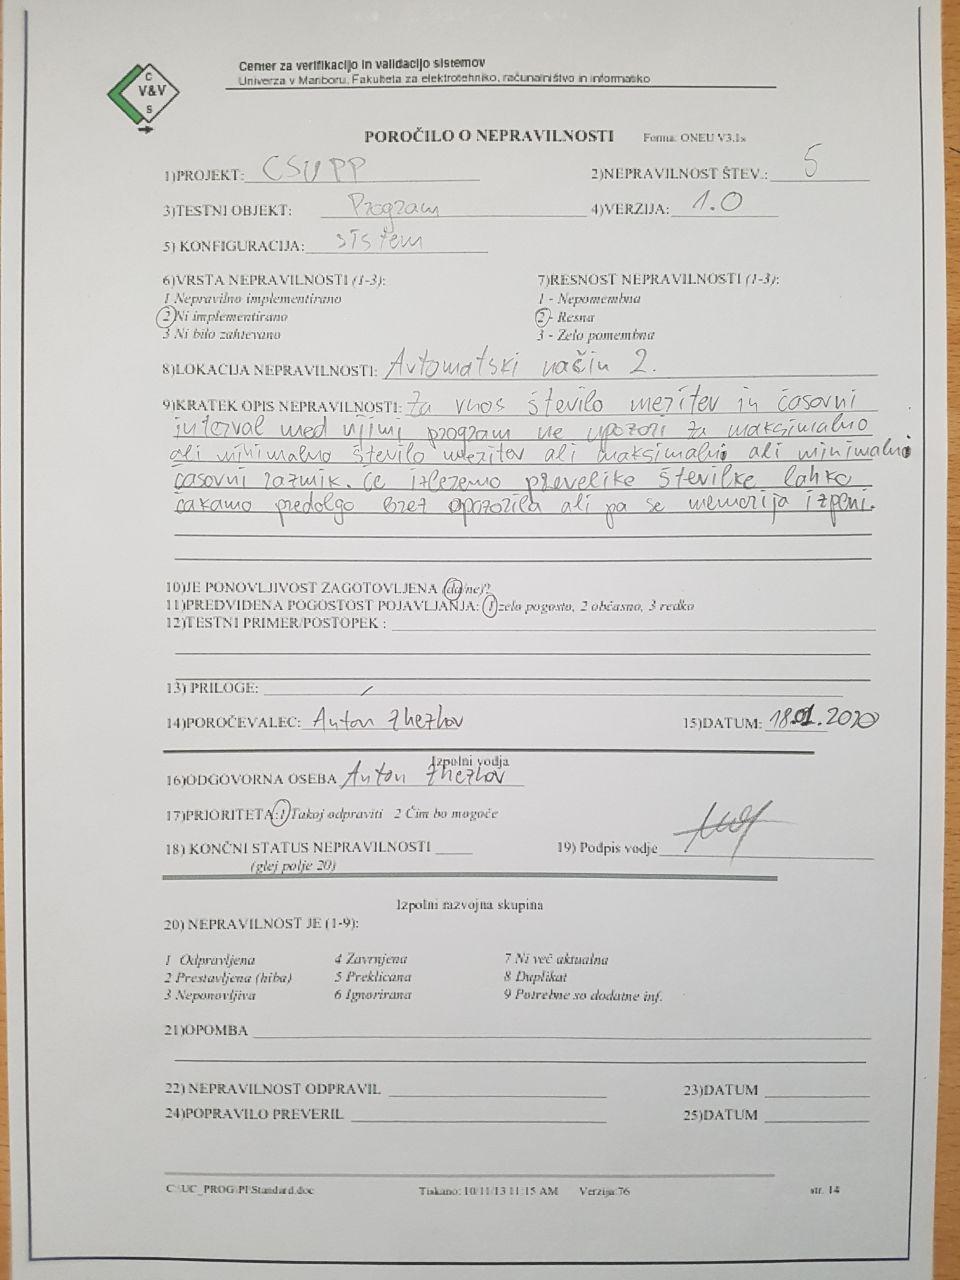 C
V&V
S
Center za verifikacijo in validacijo sistemov
Univerza v Mariboru, Fakulteta za elektrotehniko, računalništvo in informatiko
POROČILO O NEPRAVILNOSTI Forma: ONEU V3.1s
1)PROJEKT: CSUPP 2)NEPRAVILNOST ŠTEV.: 5
3)TESTNI OBJEKT: Program 4)VERZIJA: 1.0
5) KONFIGURACIJA: sistem
6)VRSTA NEPRAVILNOSTI (1-3): 7)RESNOST NEPRAVILNOSTI (1-3):
1 Nepravilno implementirano 1 - Nepomembna
2 Ni implementirano 2 - Resna
3 Ni bilo zahtevano 3 - Zelo pomembna
8)LOKACIJA NEPRAVILNOSTI: Avtomatski način 2.
9)KRATEK OPIS NEPRAVILNOSTI: Za vnos število meritev in časovni
interval med njimi program ne upozori za maksimalno
ali minimalno število meritev ali maksimalni ali minimalni
časovni razmik. Če izberemo prevelike številke lahko
čakamo predolgo brez opozorila ali pa se memorija izpolni.
10)JE PONOVLJIVOST ZAGOTOVLJENA (da/ne)?
11)PREDVIDENA POGOSTOST POJAVLJANJA: 1 zelo pogosto, 2 občasno, 3 redko
12)TESTNI PRIMER/POSTOPEK :
13) PRILOGE: /
14)POROČEVALEC: Anton Zhezhov 15)DATUM: 18.01.2020
Izpolni vodja
16)ODGOVORNA OSEBA Anton Zhezhov
17)PRIORITETA:1 Takoj odpraviti 2 Čim bo mogoče
18) KONČNI STATUS NEPRAVILNOSTI 19) Podpis vodje
(glej polje 20)
Izpolni razvojna skupina
20) NEPRAVILNOST JE (1-9):
1 Odpravljena 4 Zavrnjena 7 Ni več aktualna
2 Prestavljena (hiba) 5 Preklicana 8 Duplikat
3 Neponovljiva 6 Ignorirana 9 Potrebne so dodatne inf.
21)OPOMBA
22) NEPRAVILNOST ODPRAVIL 23)DATUM
24)POPRAVILO PREVERIL 25)DATUM
C:\UC_PROG\PI\Standard.doc Tiskano: 10/11/13 11:15 AM Verzija:76 str. 14